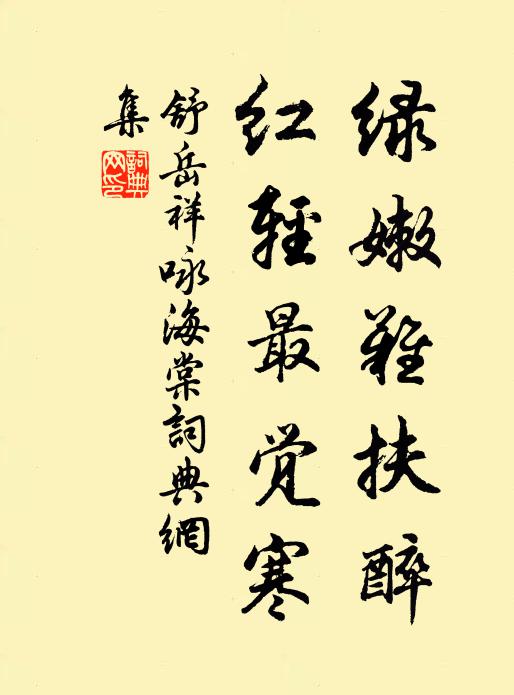 绿嫩难扶醉
红轻最觉寒
舒岳祥咏海棠词典網
集
詞典
网印